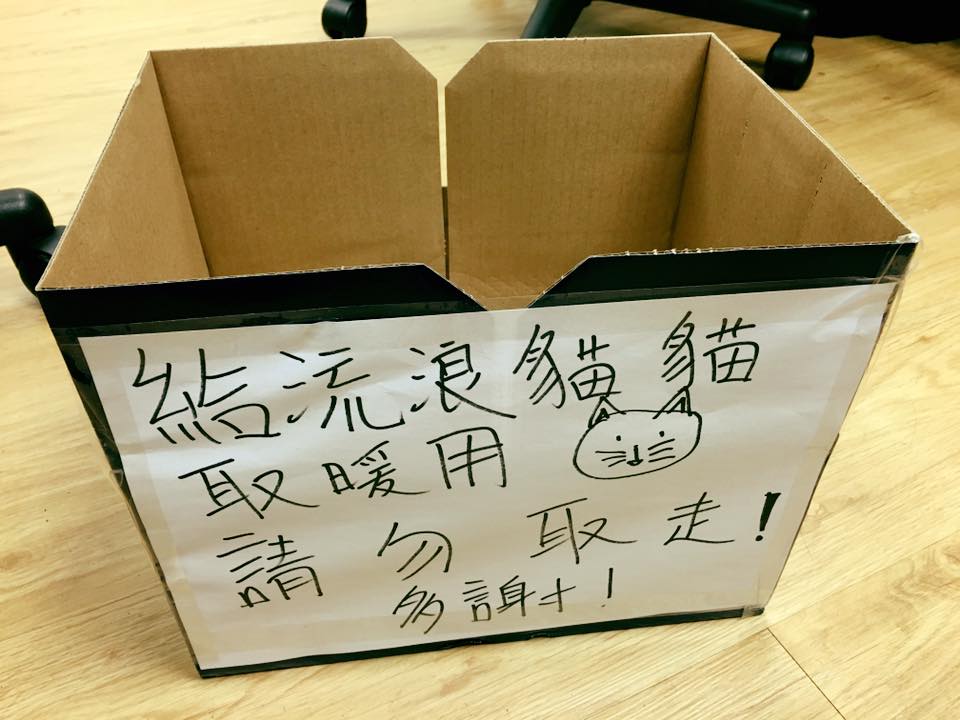 給流浪貓貓
取暖用
請勿取走!
多謝!